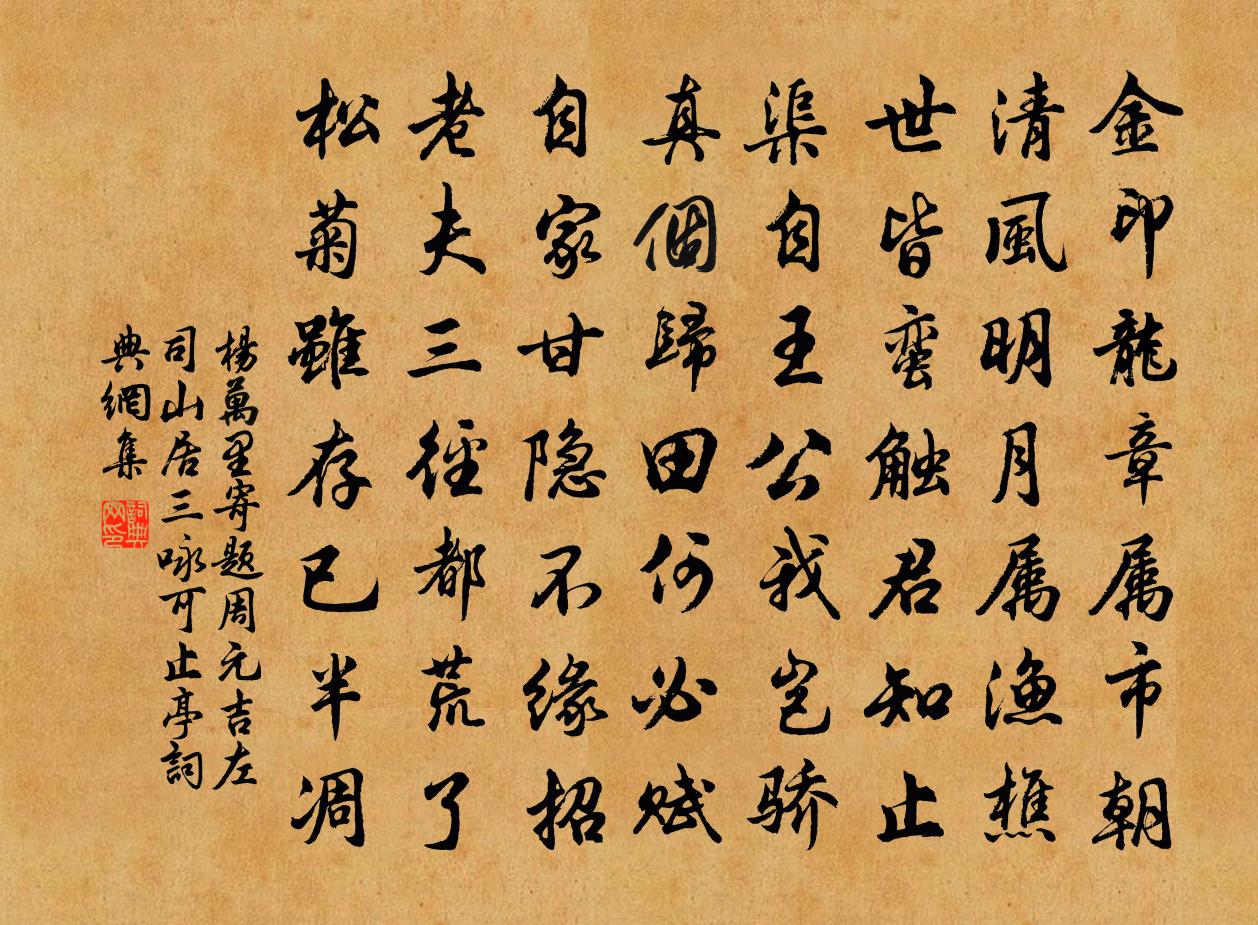 金印龍章属市朝
清風明月属漁樵
世皆蛮触君知止
渠自王公我岂骄
真個歸田何必赋
自家甘隐不缘招
老夫三徑都荒了
松菊雖存已半凋
楊萬里寄题周元吉左
司山居三咏可止亭詞
典網集
詞典网印